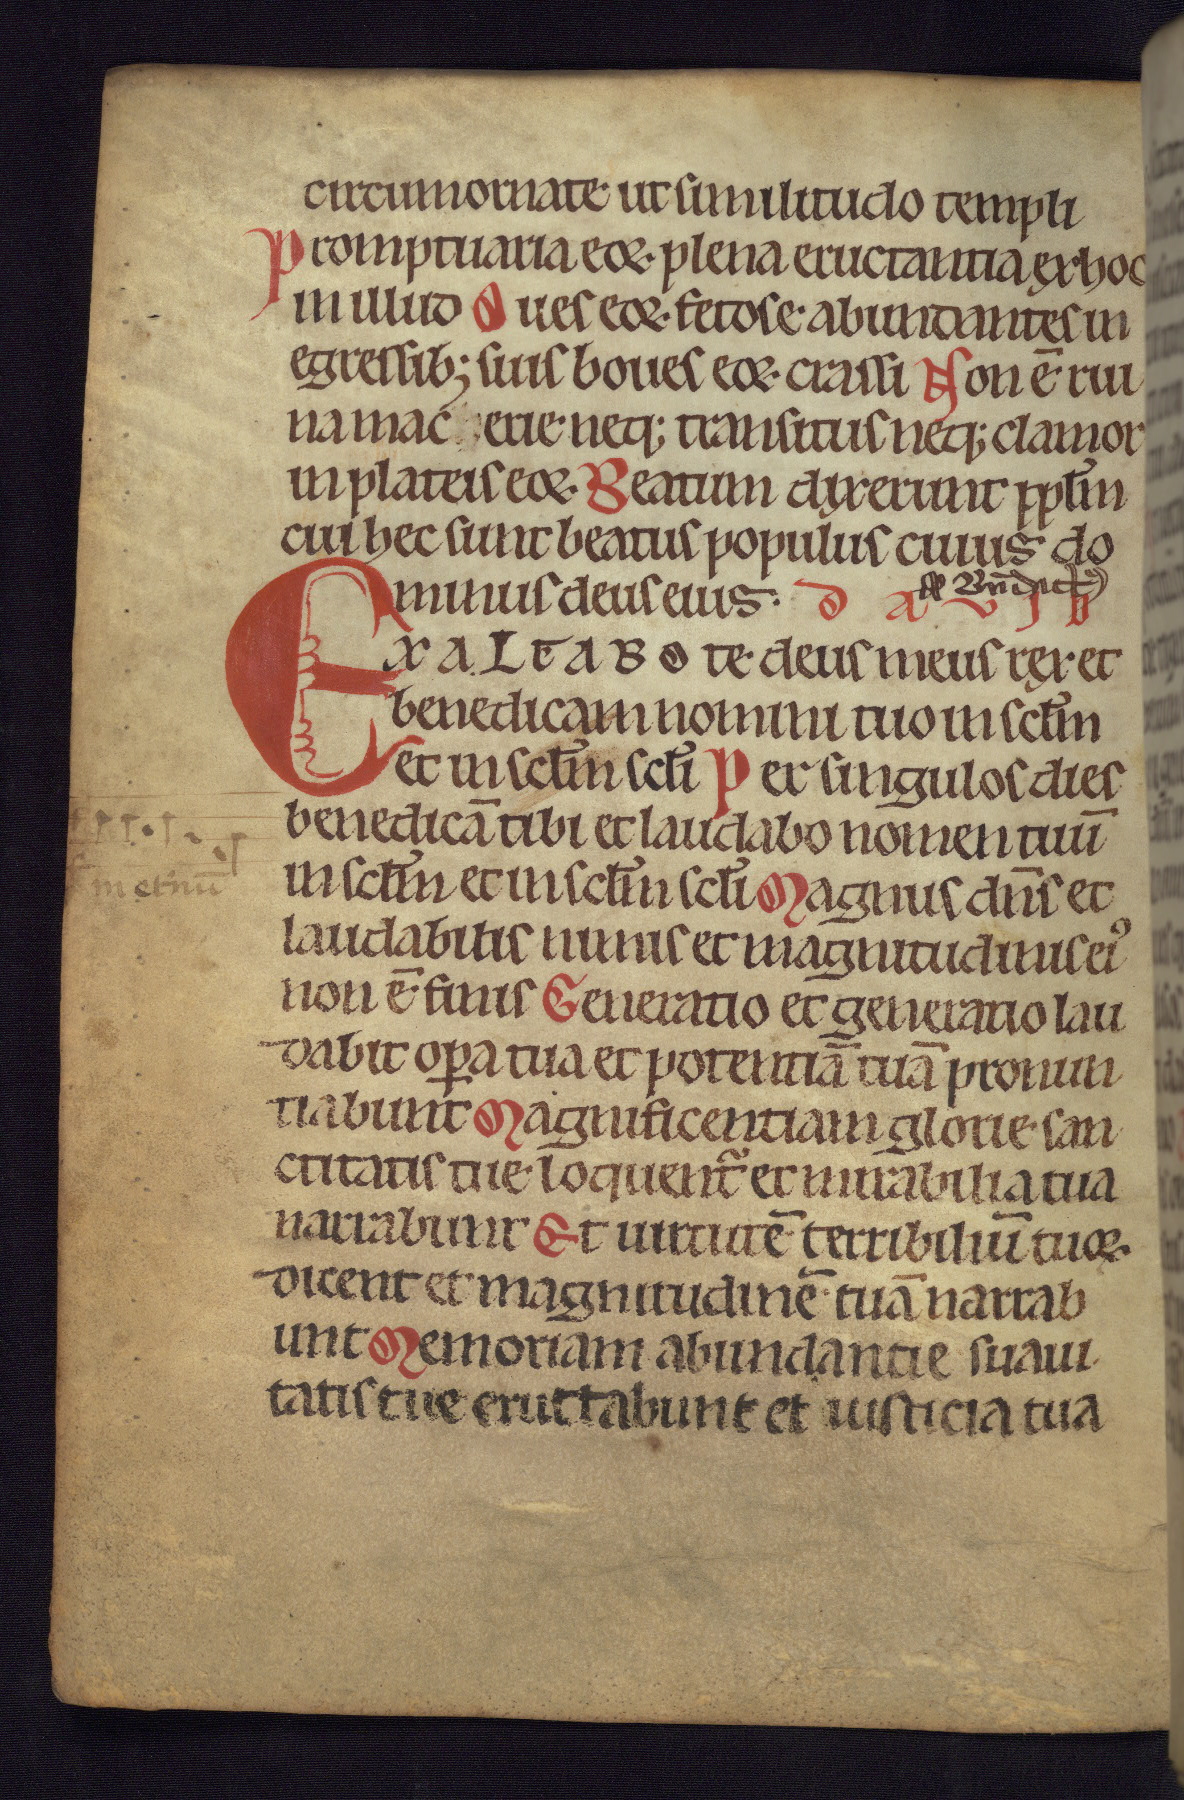 circumornate ut similitudo templi
Promptuaria eoꝝ plena eructantia ex hoc
in illud Oues eoꝝ fetose abundantes in
egressib; suis boues eoꝝ crassi Non ē rui
na macerie neq; transitus neq; clamor
in plateis eoꝝ Beatum dixerunt ppl̄m
cui hec sunt beatus populus cuius do
minus deus eius. 
EXALTABO te deus meus rex et
benedicam nomini tuo in sc̄lm
et in sc̄lm sc̄li Per singulos dies
benedicā tibi et laudabo nomen tuū
in sc̄lm et in sc̄lm sc̄li Magnus dn̄s et
laudabilis nimis et magnitudinis eiꝰ
non ē finis Generatio et generatio lau
dabit oꝑa tua et potentiā tuā pronun
tiabunt Magnificentiam glorie san
ctitatis tue loquent᷑ et mirabilia tua
narrabunt Et uirtutē terribiliū tuoꝝ
dicent et magnitudinē tuā narrab
unt Memoriam abundantie suaui
tatis tue eructabunt et iusticia tua